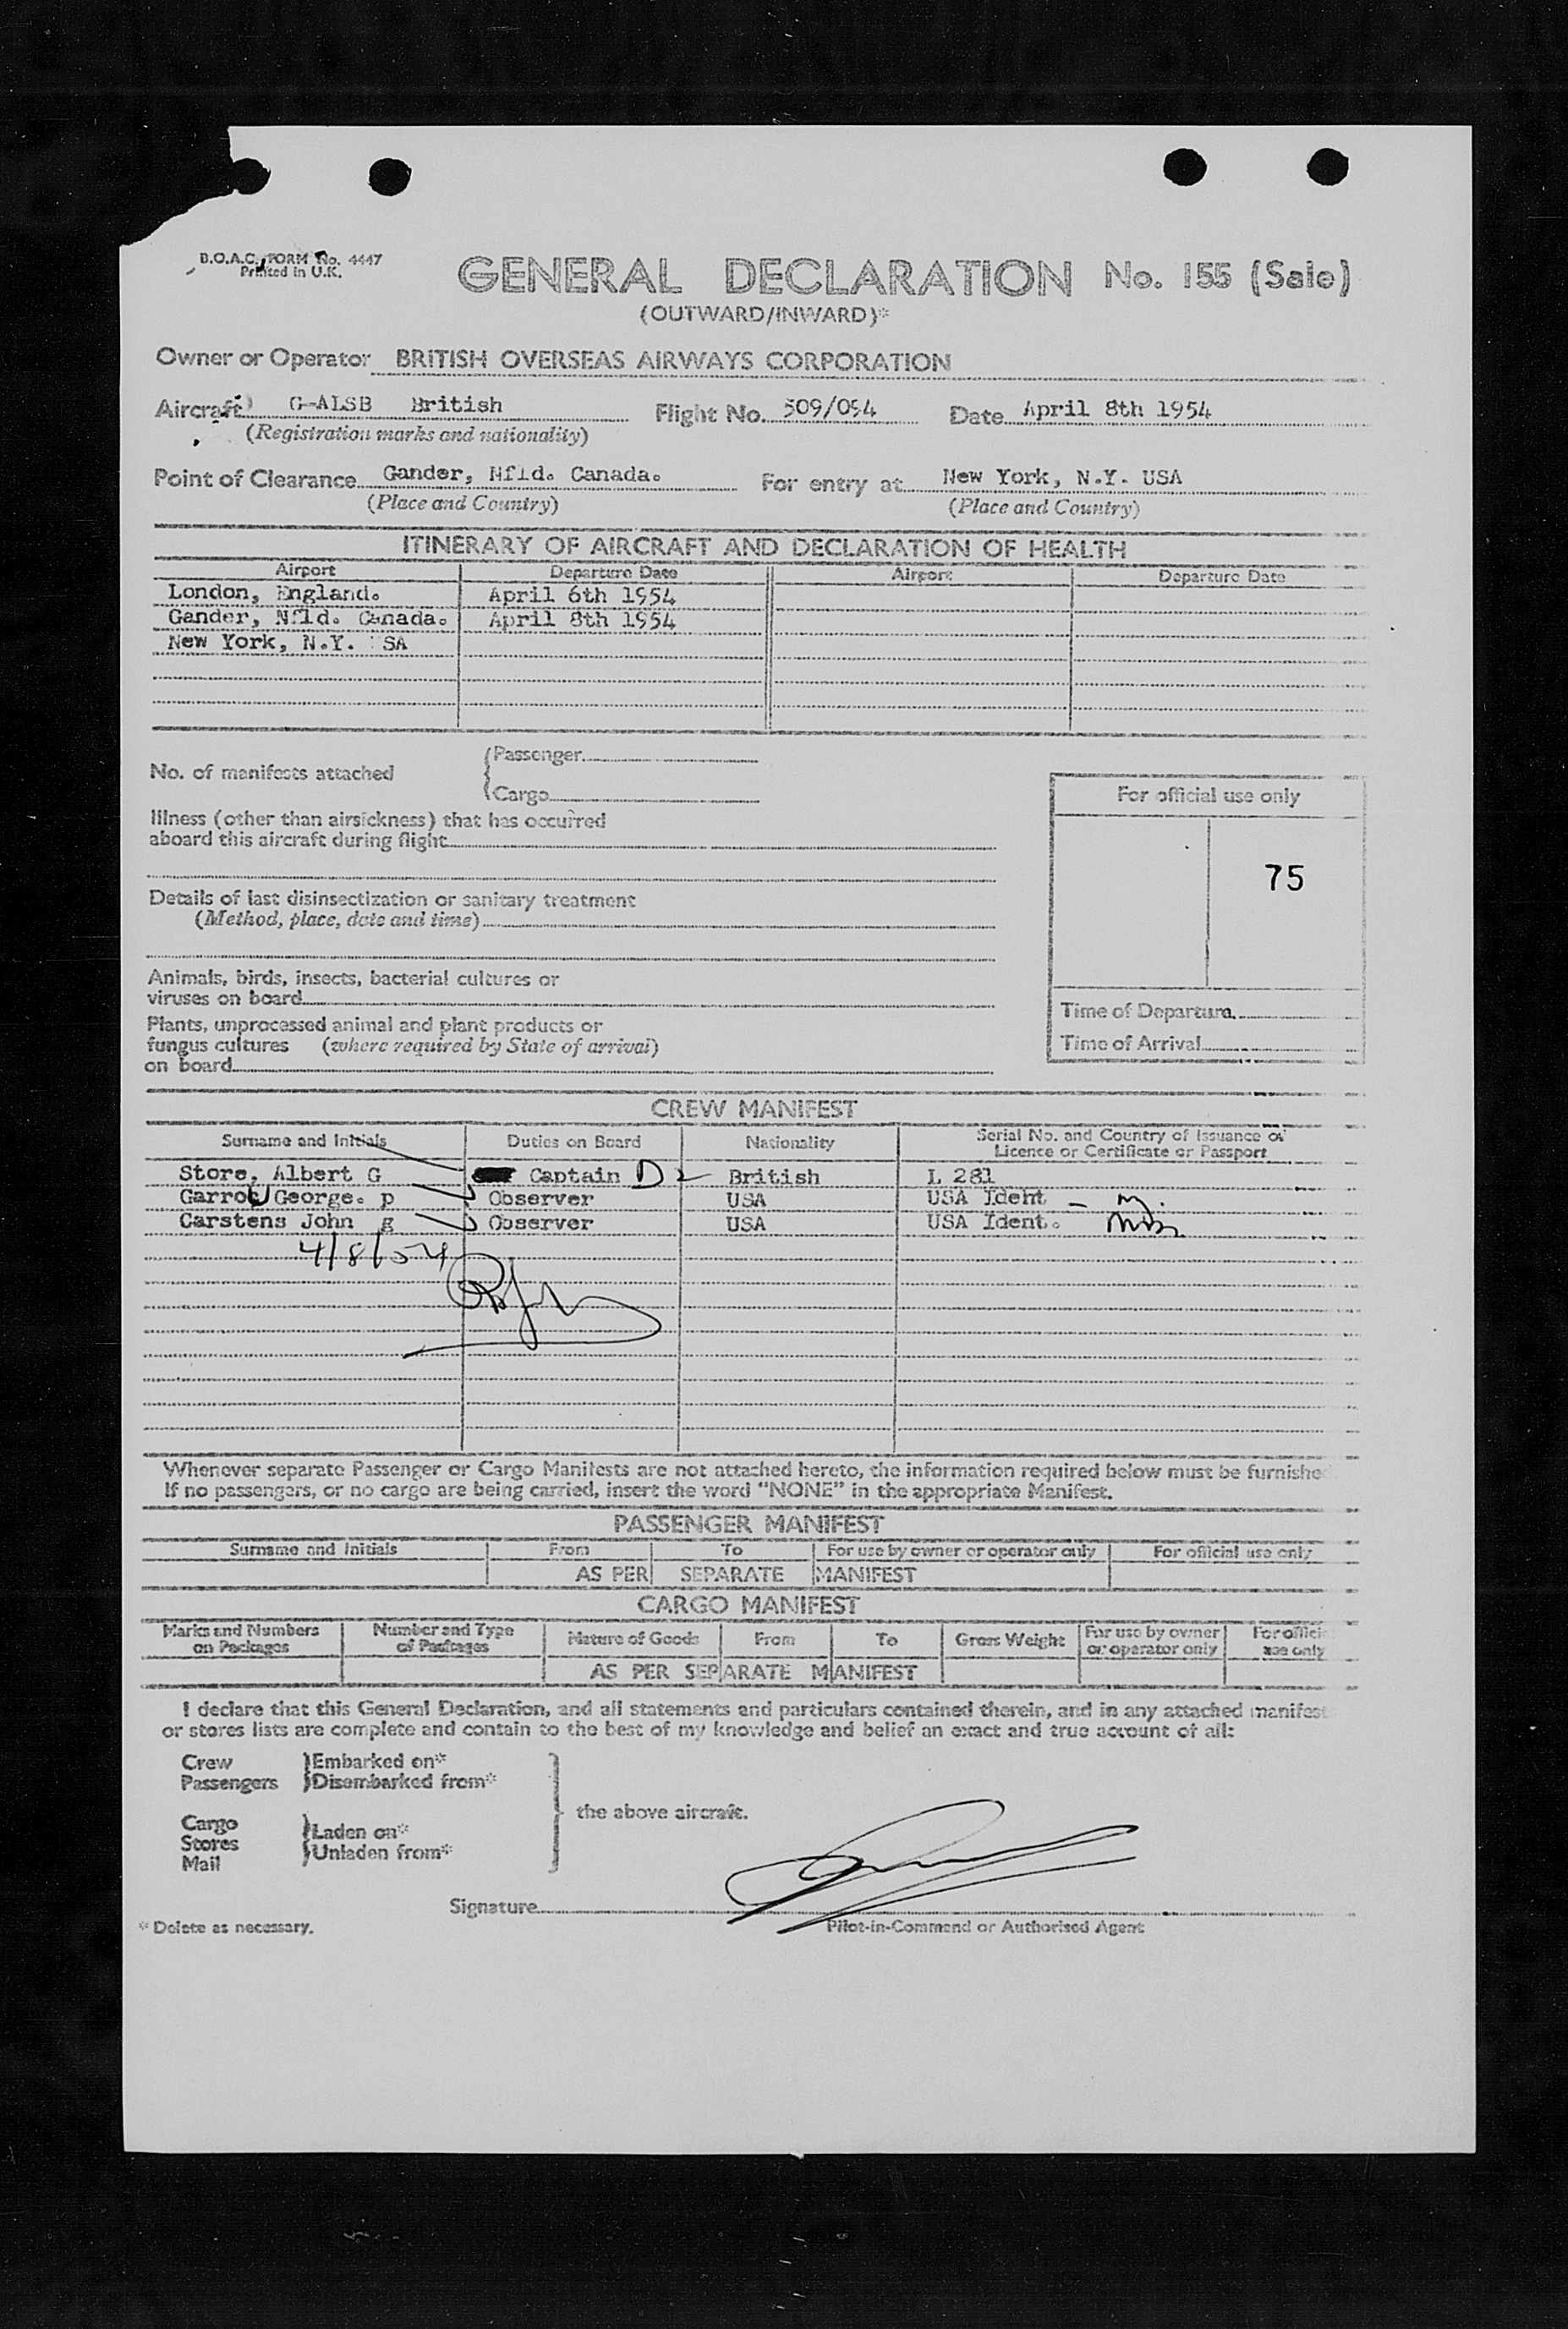 B.O.A.C. FORM No. 4447
Printed in U.K.
GENERAL DECLARATION No. 155 (Sale)
(OUTWARD/INWARD)*
Owner or Operator BRITISH OVERSEAS AIRWAYS CORPORATION
Aircraft G-ALSB British Flight No. 509/054 Date April 8th 1954
(Registration marks and nationality)
Point of Clearance Gander, Nfld. Canada. For entry at New York, N.Y. USA
(Place and Country) (Place and Country)
ITINERARY OF AIRCRAFT AND DECLARATION OF HEALTH
Airport Departure Date Airport Departure Date
London, England. April 6th 1954
Gander, Nfld. Canada. April 8th 1954
New York, N.Y. SA
No. of manifests attached {Passenger
{Cargo
Illness (other than airsickness) that has occurred
aboard this aircraft during flight
For official use only
75
Details of last disinsectization or sanitary treatment
(Method, place, date and time)
Animals, birds, insects, bacterial cultures or
viruses on board
Plants, unprocessed animal and plant products or
fungus cultures (where required by State of arrival)
on board
Time of Departure
Time of Arrival
CREW MANIFEST
Surname and Initials Duties on Board Nationality Serial No. and Country of Issuance of
Licence or Certificate or Passport
Store, Albert G Captain D2 British L 281
Garrot George. p Observer USA USA Ident
Carstens John g Observer USA USA Ident.
4/8/54
Whenever separate Passenger or Cargo Manifests are not attached hereto, the information required below must be furnishe
If no passengers, or no cargo are being carried, insert the word "NONE" in the appropriate Manifest.
PASSENGER MANIFEST
Surname and Initials From To For use by owner or operator only For official use only
AS PER SEPARATE MANIFEST
CARGO MANIFEST
Marks and Numbers on Packages Number and Type of Packages Nature of Goods From To Gross Weight For use by owner or operator only For offici use only
AS PER SEPARATE MANIFEST
I declare that this General Declaration, and all statements and particulars contained therein, and in any attached manifest
or stores lists are complete and contain to the best of my knowledge and belief an exact and true account of all:
Crew }Embarked on*
Passengers }Disembarked from*
the above aircraft.
Cargo
Stores }Laden on*
Mail }Unladen from*
Signature
* Delete as necessary. Pilot-in-Command or Authorised Agent